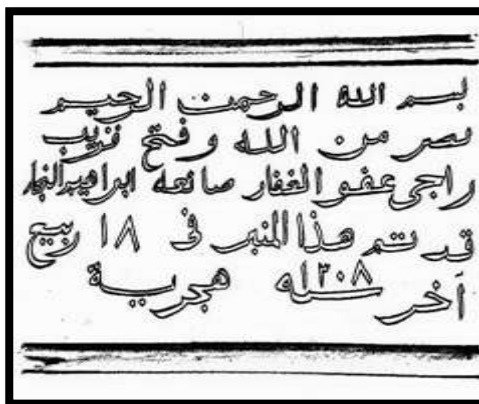 بسم الله الرحمن الرحيم
نصر من الله وفتح قريب
راجى عفو الغفار صانعه ابراهيم النجار
قد تم هذا المنبر فى ١٨ ربيع
آخر سنه ١٣٠٨ هجرية